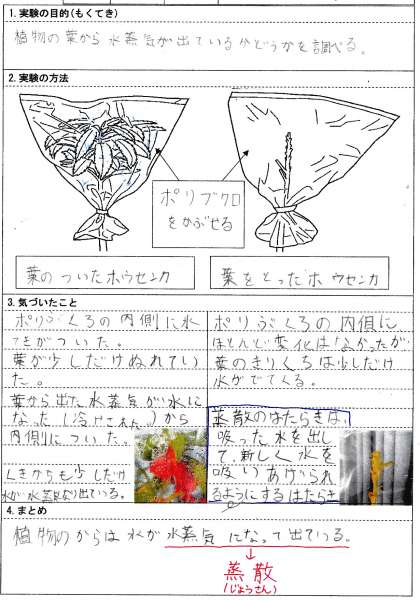 1. 実験の目的(もくてき)
植物の葉から水蒸気が出ているかどうかを調べる。
2. 実験の方法
ポリブクロ
をかぶせる
葉のついたホウセンカ
葉をとったホウセンカ
3. 気づいたこと
ポリぶくろの内側に水
てきがついた。
葉が少しだけぬれてい
た。
葉から出た水蒸気が水に
なった(冷やされた)から
内側についた。
くきからも少しだけ
水が水蒸気になり出ている。
ポリぶくろの内側に
ほとんど変化はなかったが
葉のきりくちは少しだけ
水がでてくる。
蒸散のはたらきは、
吸った水を出し
て、新しく水を
吸いあげられ
るようにするはたらき
4. まとめ
植物のからは水が水蒸気になって出ている。
蒸散
(じょうさん)